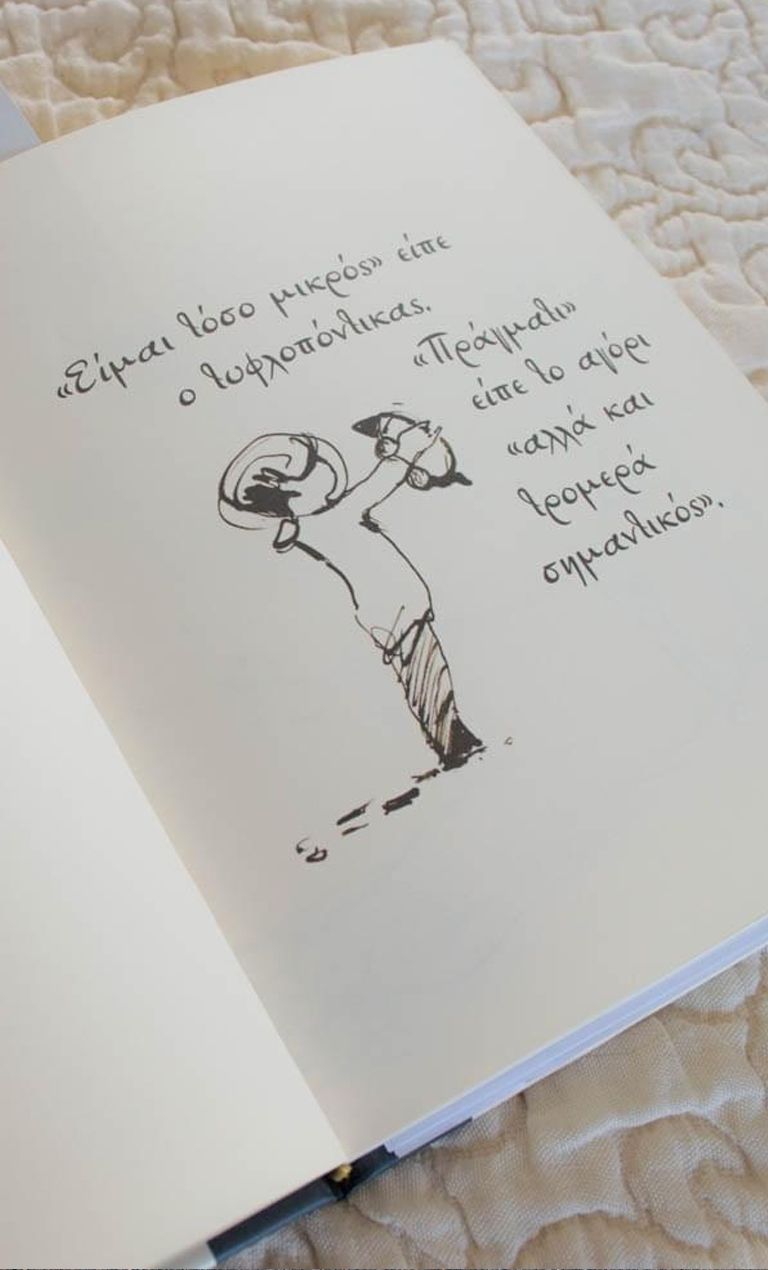 «Είμαι τόσο μικρός» είπε
ο τυφλοπόντικας.
«Πράγματι»
είπε το αγόρι
«αλλά και
τρομερά
σημαντικός».